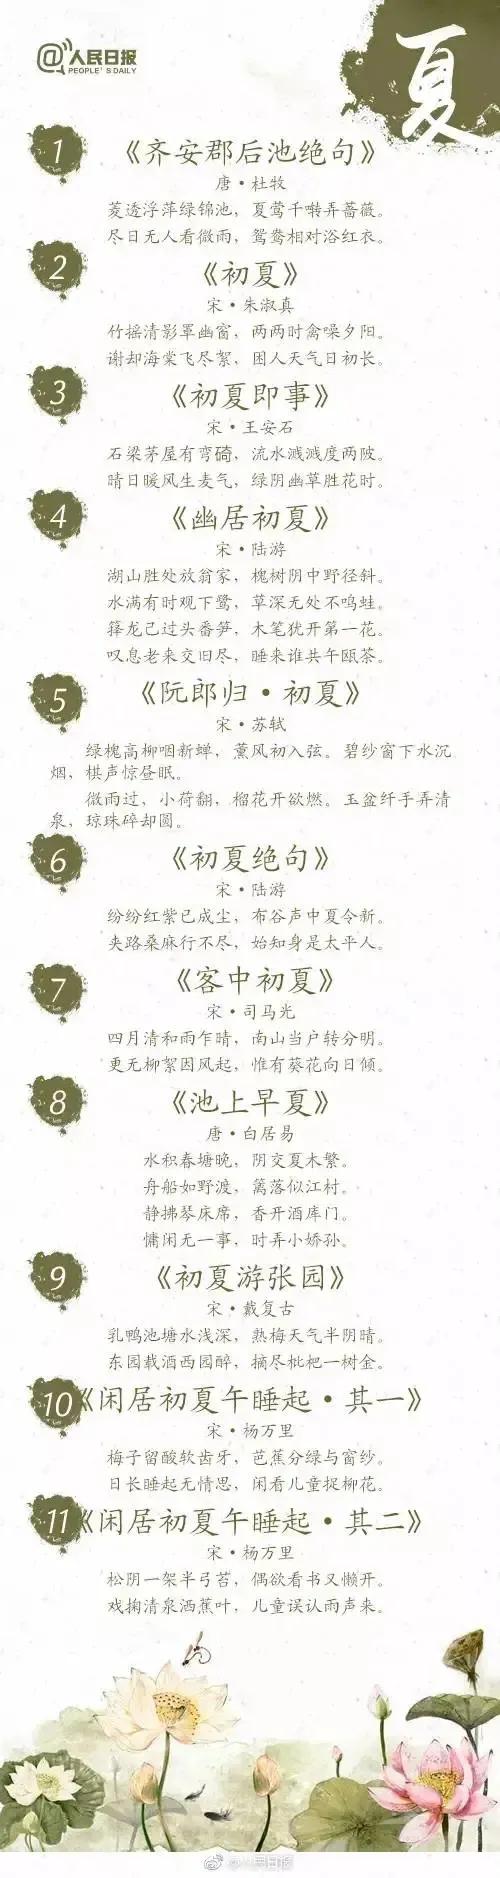 @人民日报
PEOPLE'S DAILY
夏
1
《齐安郡后池绝句》
唐·杜牧
菱透浮萍绿锦池，夏莺千啭弄蔷薇。
尽日无人看微雨，鸳鸯相对浴红衣。
2
《初夏》
宋·朱淑真
竹摇清影罩幽窗，两两时禽噪夕阳。
谢却海棠飞尽絮，困人天气日初长。
3
《初夏即事》
宋·王安石
石梁茅屋有弯碕，流水溅溅度两陂。
晴日暖风生麦气，绿阴幽草胜花时。
4
《幽居初夏》
宋·陆游
湖山胜处放翁家，槐树阴中野径斜。
水满有时观下鹭，草深无处不鸣蛙。
箨龙已过头番笋，木笔犹开第一花。
叹息老来交旧尽，睡来谁共午瓯茶。
5
《阮郎归·初夏》
宋·苏轼
绿槐高柳咽新蝉，薰风初入弦。碧纱窗下水沉
烟，棋声惊昼眠。
微雨过，小荷翻，榴花开欲燃。玉盆纤手弄清
泉，琼珠碎却圆。
6
《初夏绝句》
宋·陆游
纷纷红紫已成尘，布谷声中夏令新。
夹路桑麻行不尽，始知身是太平人。
7
《客中初夏》
宋·司马光
四月清和雨乍晴，南山当户转分明。
更无柳絮因风起，惟有葵花向日倾。
8
《池上早夏》
唐·白居易
水积春塘晚，阴交夏木繁。
舟船如野渡，篱落似江村。
静拂琴床席，香开酒库门。
慵闲无一事，时弄小娇孙。
9
《初夏游张园》
宋·戴复古
乳鸭池塘水浅深，熟梅天气半阴晴。
东园载酒西园醉，摘尽枇杷一树金。
10
《闲居初夏午睡起·其一》
宋·杨万里
梅子留酸软齿牙，芭蕉分绿与窗纱。
日长睡起无情思，闲看儿童捉柳花。
11
《闲居初夏午睡起·其二》
宋·杨万里
松阴一架半弓苔，偶欲看书又懒开。
戏掬清泉洒蕉叶，儿童误认雨声来。
@人民日报